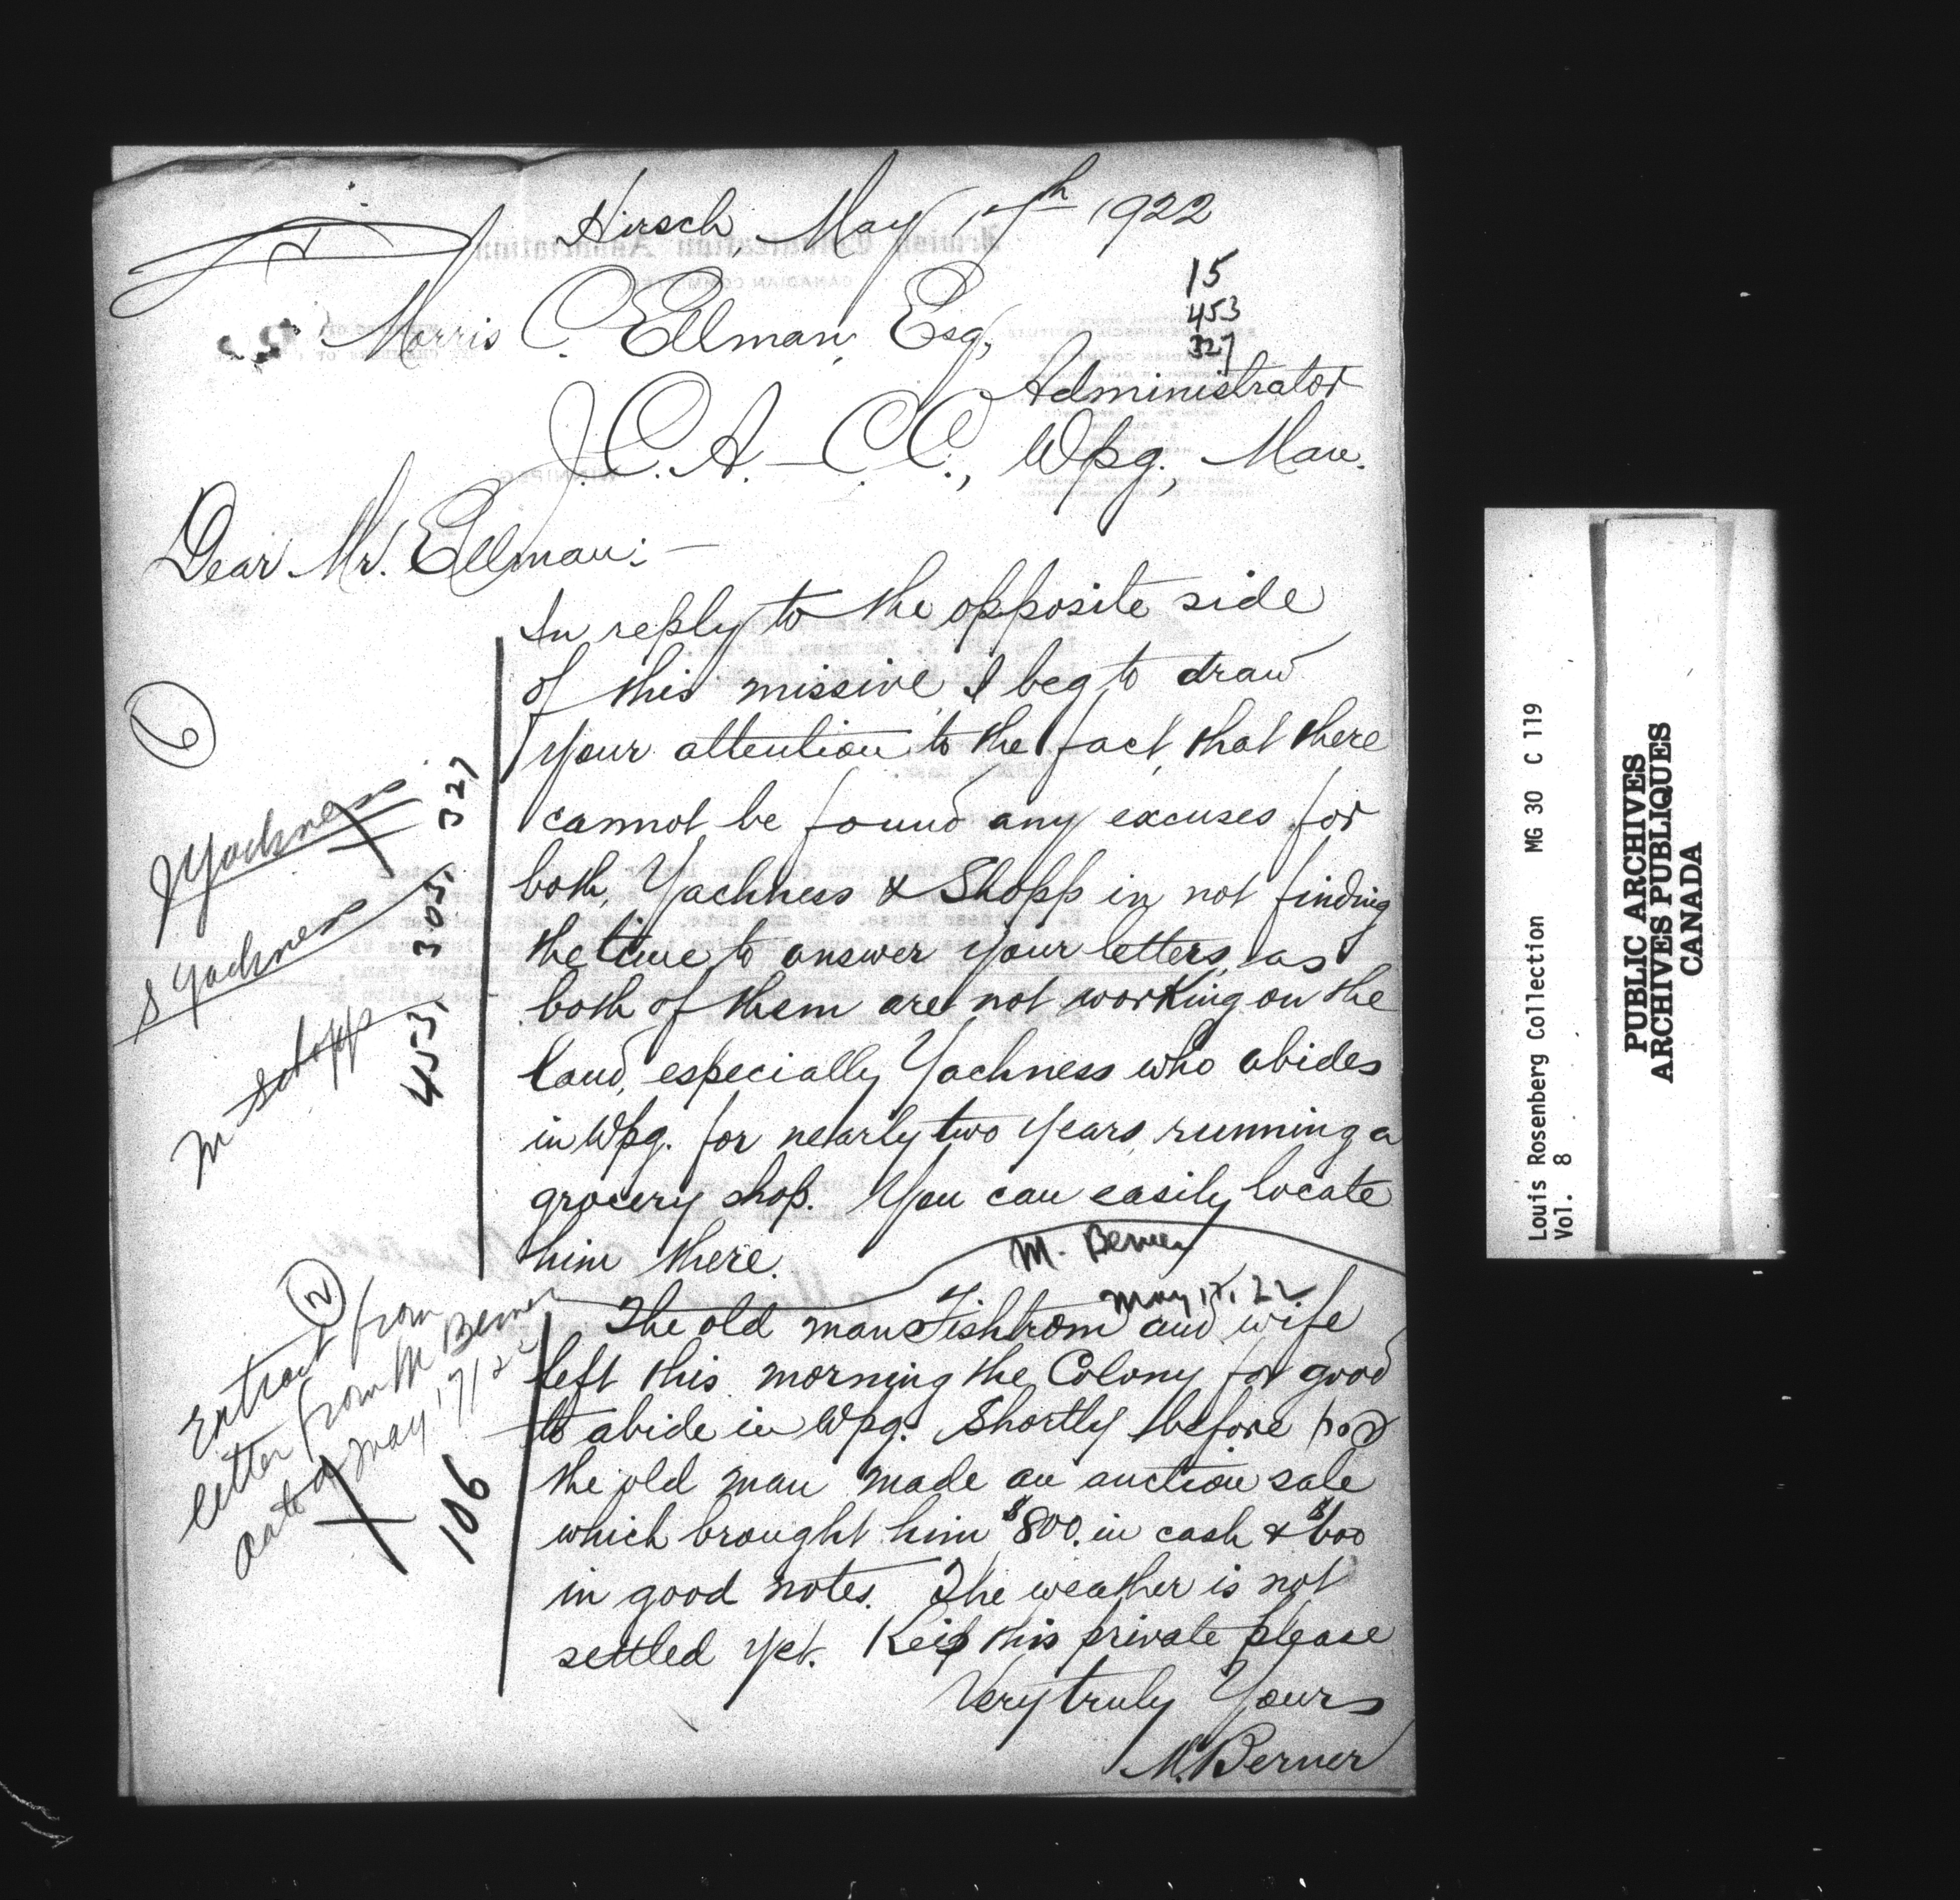 Hirsch, May 17th 1922
15
453
327
Morris C. Ellman, Esq,
Administrator
J.C.A. - C.C., Wpg., Man.
Dear Mr. Ellman:-
In reply to the opposite side
of this missive, I beg to draw
your attention to the fact, that there
cannot be found any excuses for
both, Yachness & Shopp in not finding
the time to answer your letters, as
both of them are not working on the
land, especially Yachness who abides
in Wpg. for nearly two years, running a
grocery shop. You can easily locate
him there.
M. Berner
May 17, 22
The old man Fishtrom and wife
left this morning the Colony for good
to abide in Wpg. Shortly before
the old man made an auction sale
which brought him $800. in cash & $600
in good notes. The weather is not
settled yet. Keip this private please
Very truly Yours
M. Berner
6
J Yachness 327
S Yachness 305
M Schopp 453
2
Extract from
letter from M Berner
dated May 17/22
106
Louis Rosenberg Collection MG 30 C 119
Vol. 8
PUBLIC ARCHIVES
ARCHIVES PUBLIQUES
CANADA